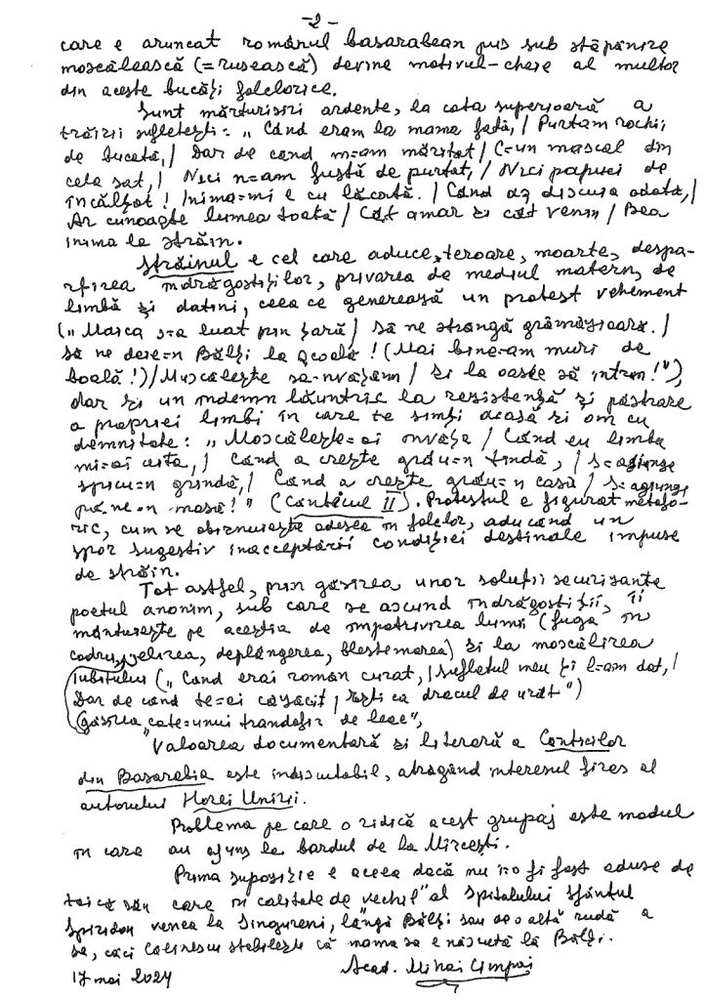 -2-
care e aruncat românul basarabean pus sub stăpânire
moscălească (=rusească) devine motivul-cheie al multor
din aceste bucăți folclorice.
Sunt mărturisiri ardente, la cota superioară a
trăirii sufletești: „Când eram la mama fată,/ Purtam rochii
de bucată,/ Dar de când m=am măritat/ C=un mascal din
cela sat,/ Nici n=am fustă de purtat,/ Nici papuci de
încălțat! Inima=mi e cu lăcată./ Când aș discuia odată,/
Ar cunoaște lumea toată/ Cât amar și cât venin/ Bea
inima la străin.
Străinul e cel care aduce teroare, moarte, despă-
rțirea îndrăgostiților, privarea de mediul matern, de
limbă și datini, ceea ce generează un protest vehement
(„Maica s=a luat prin țară/ să ne strângă grămăjioară./
Să ne deie=n Bălți la școală! (Mai bine=am muri de
boală!)/ Muscălește să-nvățăm/ Și la oaste să intrăm!"),
dar și un îndemn lăuntric la rezistență și păstrare
a propriei limbi în care te simți acasă și om cu
demnitate: „Moscălește=oi învăța/ Când eu limba
mi=oi uita,/ Când a crește grâu=n tindă,/ S=ajunge
spicu=n grindă,/ Când a crește grâu=n casă/ S=ajunge
pâne=n masă!" (Cântecul II). Protestul e figurat metafo-
ric, cum se obișnuiește adesea în folclor, aducând un
spor sugestiv inacceptării condiției destinale impuse
de străin.
Tot astfel, prin găsirea unor soluții securizante
poetul anonim, sub care se ascund îndrăgostiții, îi
mântuiește pe aceștia de împotrivirea lumii (fuga în
codru, jelirea, deplângerea, blestemarea) și la moscălirea
iubitului („Când erai român curat,/ Sufletul meu ți l=am dat,/
Dar de când te=ai căzăcit/ Ești ca dracul de urât")
(găsirea „cate=unui trandafir de leac",
Valoarea documentară și literară a Cânticilor
din Basarabia este indiscutabilă, atrăgând interesul firesc al
autorului Horei Unirii.
Problema pe care o ridică acest grupaj este modul
în care au ajuns la bardul de la Mircești.
Prima supoziție e aceea dacă nu i=o fi fost aduse de
taică său care în calitate de „vechil" al Spitalului Sfântul
Spiridon venea la Singureni, lângă Bălți sau de o altă rudă a
sa, căci Călinescu stabilește că mama sa e născută la Bălți.
17 mai 2024 Acad. Mihai Cimpoi